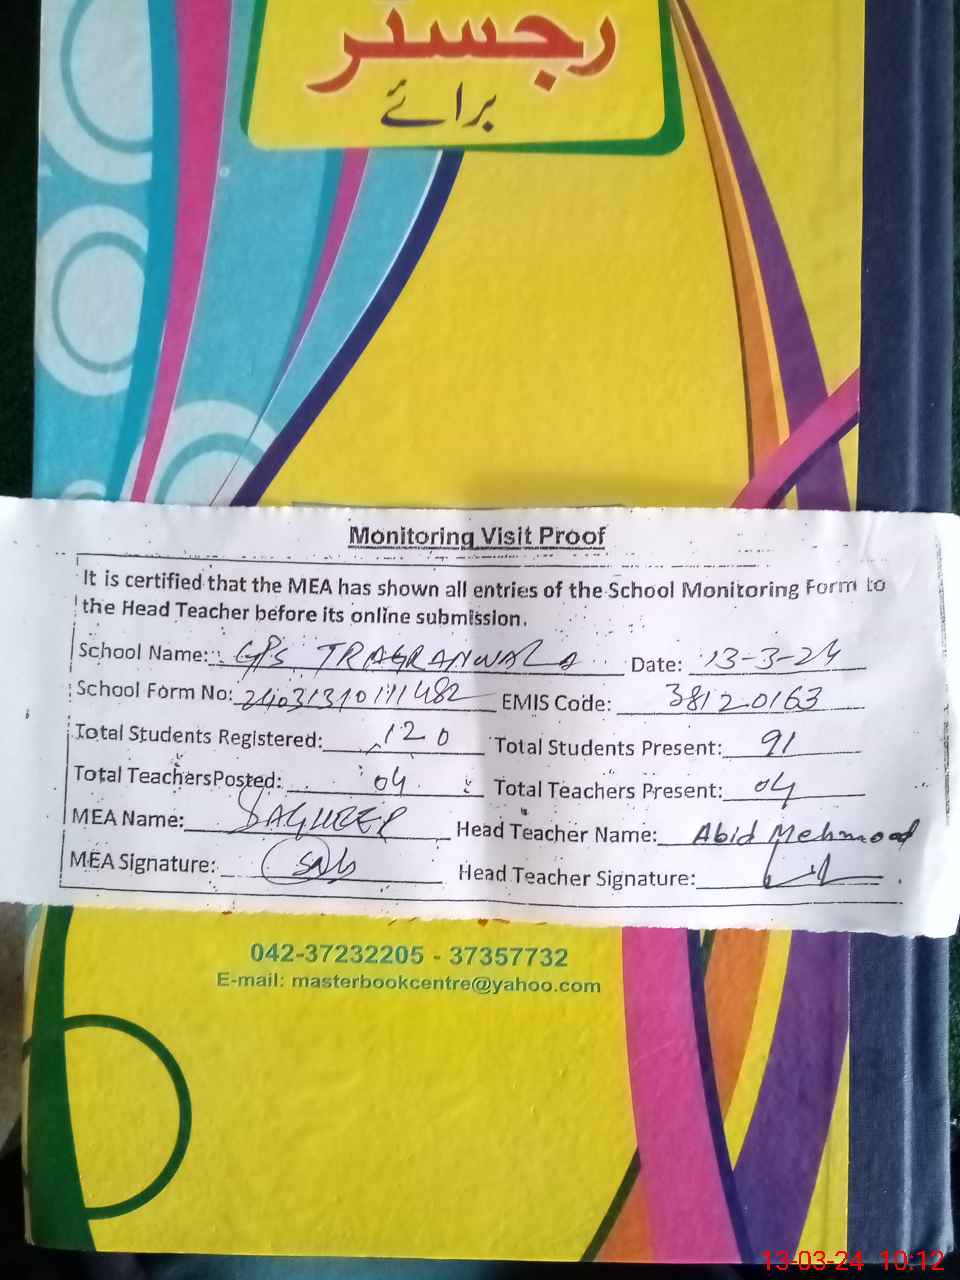 رجسٹر
برائے
Monitoring Visit Proof
It is certified that the MEA has shown all entries of the School Monitoring Form to
the Head Teacher before its online submission.
School Name: GPS TRAGRANWALA Date: 13-3-24
School Form No: EMIS Code: 38120163
Total Students Registered: 120 Total Students Present: 91
Total Teachers Posted: 04 Total Teachers Present: 04
MEA Name: SAGHEER Head Teacher Name: Abid Mehmood
MEA Signature: Head Teacher Signature:
042-37232205 - 37357732
E-mail: masterbookcentre@yahoo.com
13-03-24 10:12